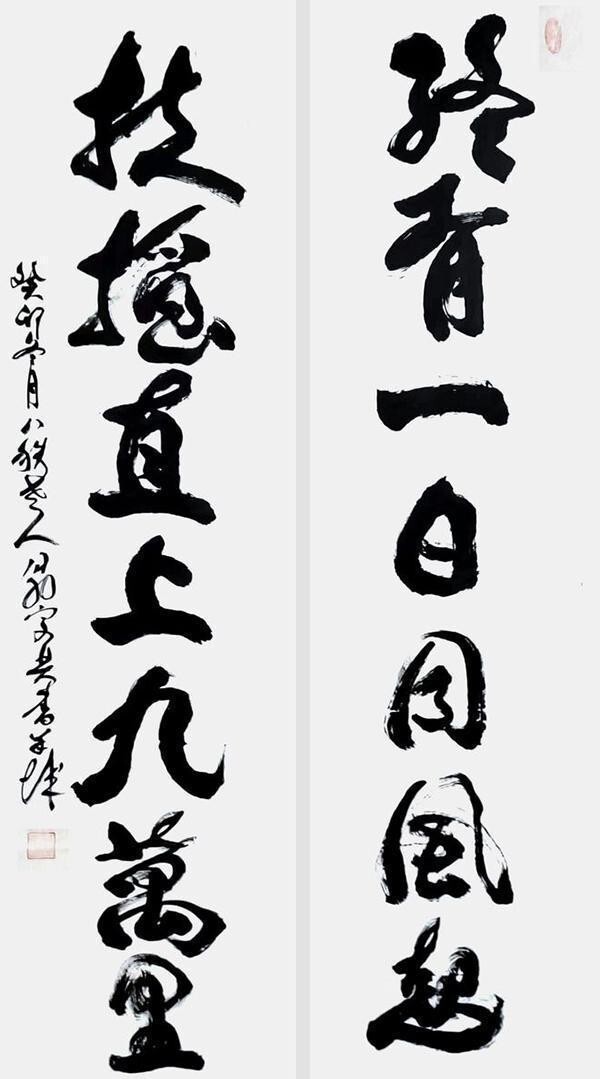 終有一日同風起
扶搖直上九萬里
癸卯冬月八秩老人書羊城